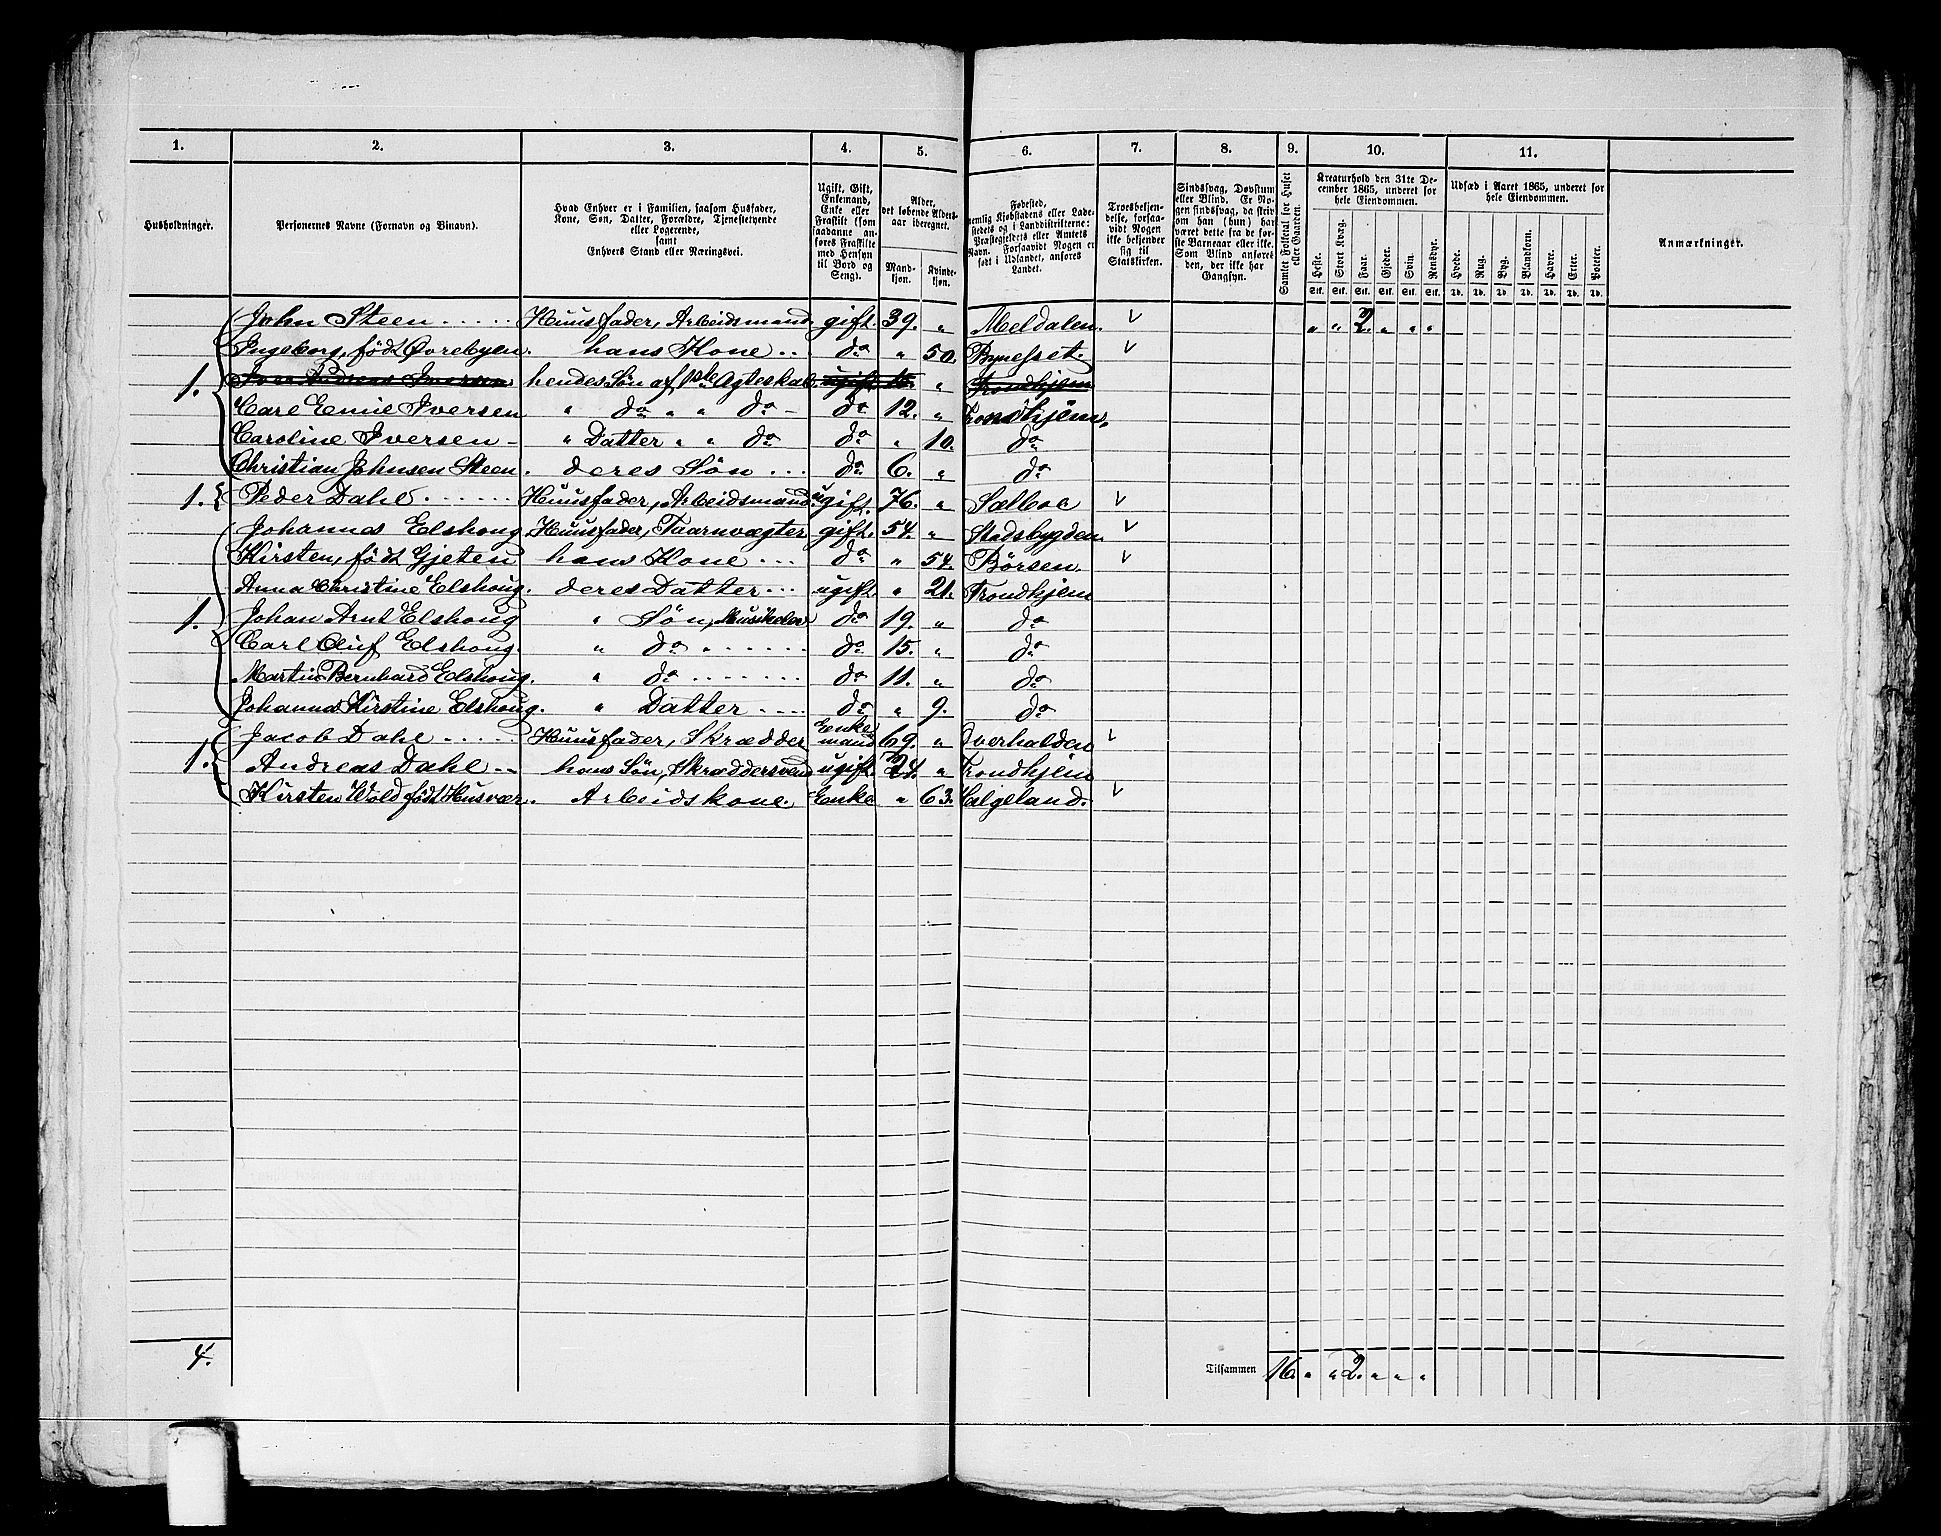 1. 2. 3. 4. 5. 6. 7. 8. 9. 10. 11.
Husholdninger.
Personernes Navne (Fornavn og Tilnavn).
Hvad Enhver er i Familien, saasom Husfader,
Kone, Søn, Datter, Forældre, Tjenestetyende
eller Logerende,
samt
Enhvers Stand eller Næringsvei.
Ugift, Gift,
Enkemand,
Enke eller
Fraskilt (som
saadanne an-
føres Fraskilte
med Hensyn
til Bord og
Seng).
Alder,
det løbende Alders-
aar iberegnet.
Mand-
kjøn.
Kvinde-
kjøn.
Fødested,
nemlig Kjøbstadens eller Lade-
stedets og i Landdistrikterne:
Præstegjeldets eller Amtets
Navn. Forsaavidt Nogen er
født i Udlandet, anføres
Landet.
Troesbekjen-
delse, forsaa-
vidt Nogen
ikke bekjender
sig til
Statskirken.
Sindssvag, Døvstum
eller Blind. Er No-
gen sindssvag, da skriv
om han (hun) har
været dette fra de før-
ste Barneaar eller ikke.
Som Blind anføres
den, der ikke har
Gangsyn.
Samlet Folketal for Huset
eller Gaarden.
Kreaturhold den 31te De-
cember 1865, underet for
hele Eiendommen.
Heste. Stort Kvæg. Faar. Gjeder. Svin. Rensdyr.
Stk. Stk. Stk. Stk. Stk. Stk.
Udsæd i Aaret 1865, underet for
hele Eiendommen.
Hvede. Rug. Byg. Blandkorn. Havre. Erter. Poteter.
Td. Td. Td. Td. Td. Td. Td.
Anmærkninger.
John Steen Huusfader, Arbeidsmand gift. 39. „ Meldalen. „ „ 2. „ „ „
Ingeborg, født Øvrebyen. hans Kone do „ 50. Bynesset.
1. Iver Andreas Iversen hendes Søn af 1ste Ægteskab ugift 15. „ Trondhjem
Carl Emil Iversen „ do „ „ do do 12. „ Trondhjem.
Caroline Iversen „ Datter „ „ do do „ 10. do
Christian Johnsen Steen. deres Søn do 6. „ do
1. Peder Dahl Huusfader, Arbeidsmand ugift. 76. „ Sælboe
Johannes Elshoug Huusfader, Taarnvægter gift. 54. „ Stadsbygden.
Kirsten, født Gjeten hans Kone do „ 54. Børsen.
Anna Christine Elshoug. deres Datter ugift. „ 21. Trondhjem
1. Johan Arnt Elshoug „ Søn, do 19. „ do
Carl Oluf Elshoug. „ do „ do 15. „ do
Martin Bernhard Elshoug. „ do do 11. „ do
Johanna Kirstine Elshoug. „ Datter do „ 9. do
Jacob Dahl Huusfader, Skrædder Enkemand 69. „ Overhalden
1. Andreas Dahl hans Søn, Skræddersvend ugift. 24. „ Trondhjem
Kirsten Wold født Husvær. Arbeidskone. Enke „ 63. Helgeland.
4.
Tilsammen 16. „ „ 2. „ „ „